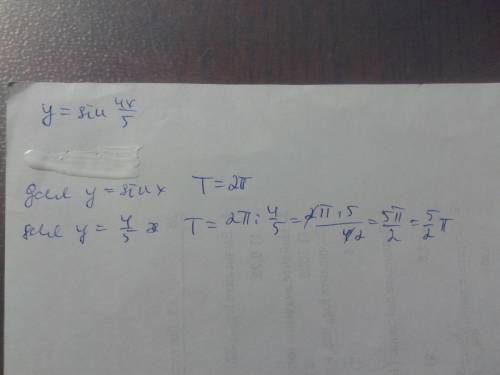 y = sin 4x/5
для y = sin x T = 2π
для y = 4/5 x T = 2π : 4/5 = 2π · 5 / 4 2 = 5π/2 = 5/2 π